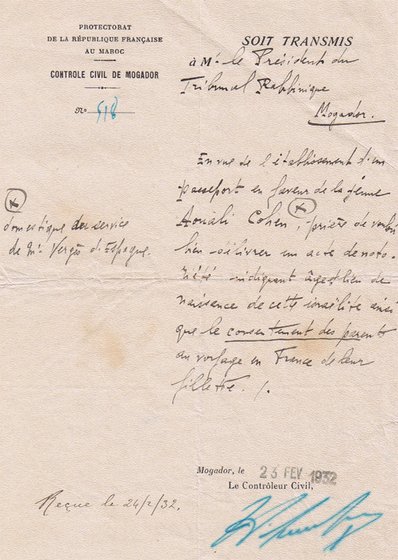 PROTECTORAT
DE LA RÉPUBLIQUE FRANÇAISE
AU MAROC
CONTROLE CIVIL DE MOGADOR
No 518
SOIT TRANSMIS
à Mr le Président du
Tribunal Rabbinique
Mogador.
En vue de l'établissement d'un
passeport en faveur de la jeune
Cohen (x), prière de vouloir
bien délivrer un acte de noto-
riété indiquant âge et lieu de
naissance de cette israélite ainsi
que le consentement des parents
au voyage en France de leur
fillette ./.
(x)
domestique au service
de Mr Vergès d'Espagne.
Mogador, le 23 FEV 1932
Le Contrôleur Civil,
Reçue le 24/2/32.